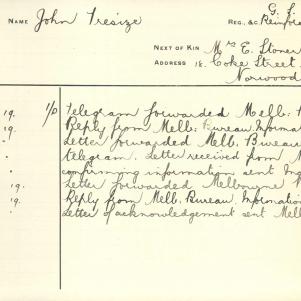 NAME John Tresize REG. &C. G. S.
Reinforce
NEXT OF KIN Mrs E. Stoner
ADDRESS 18. Coke Street
Norwood
19. 1/0 telegram forwarded Melb:
19. Reply from Melb: Bureau, Informa
" Letter forwarded Melb. Bureau
" telegram. Letter received from
" confirming information sent Inq
19. Letter forwarded Melbourne
19. Reply from Melb. Bureau. Information
" Letter of acknowledgement sent Mel